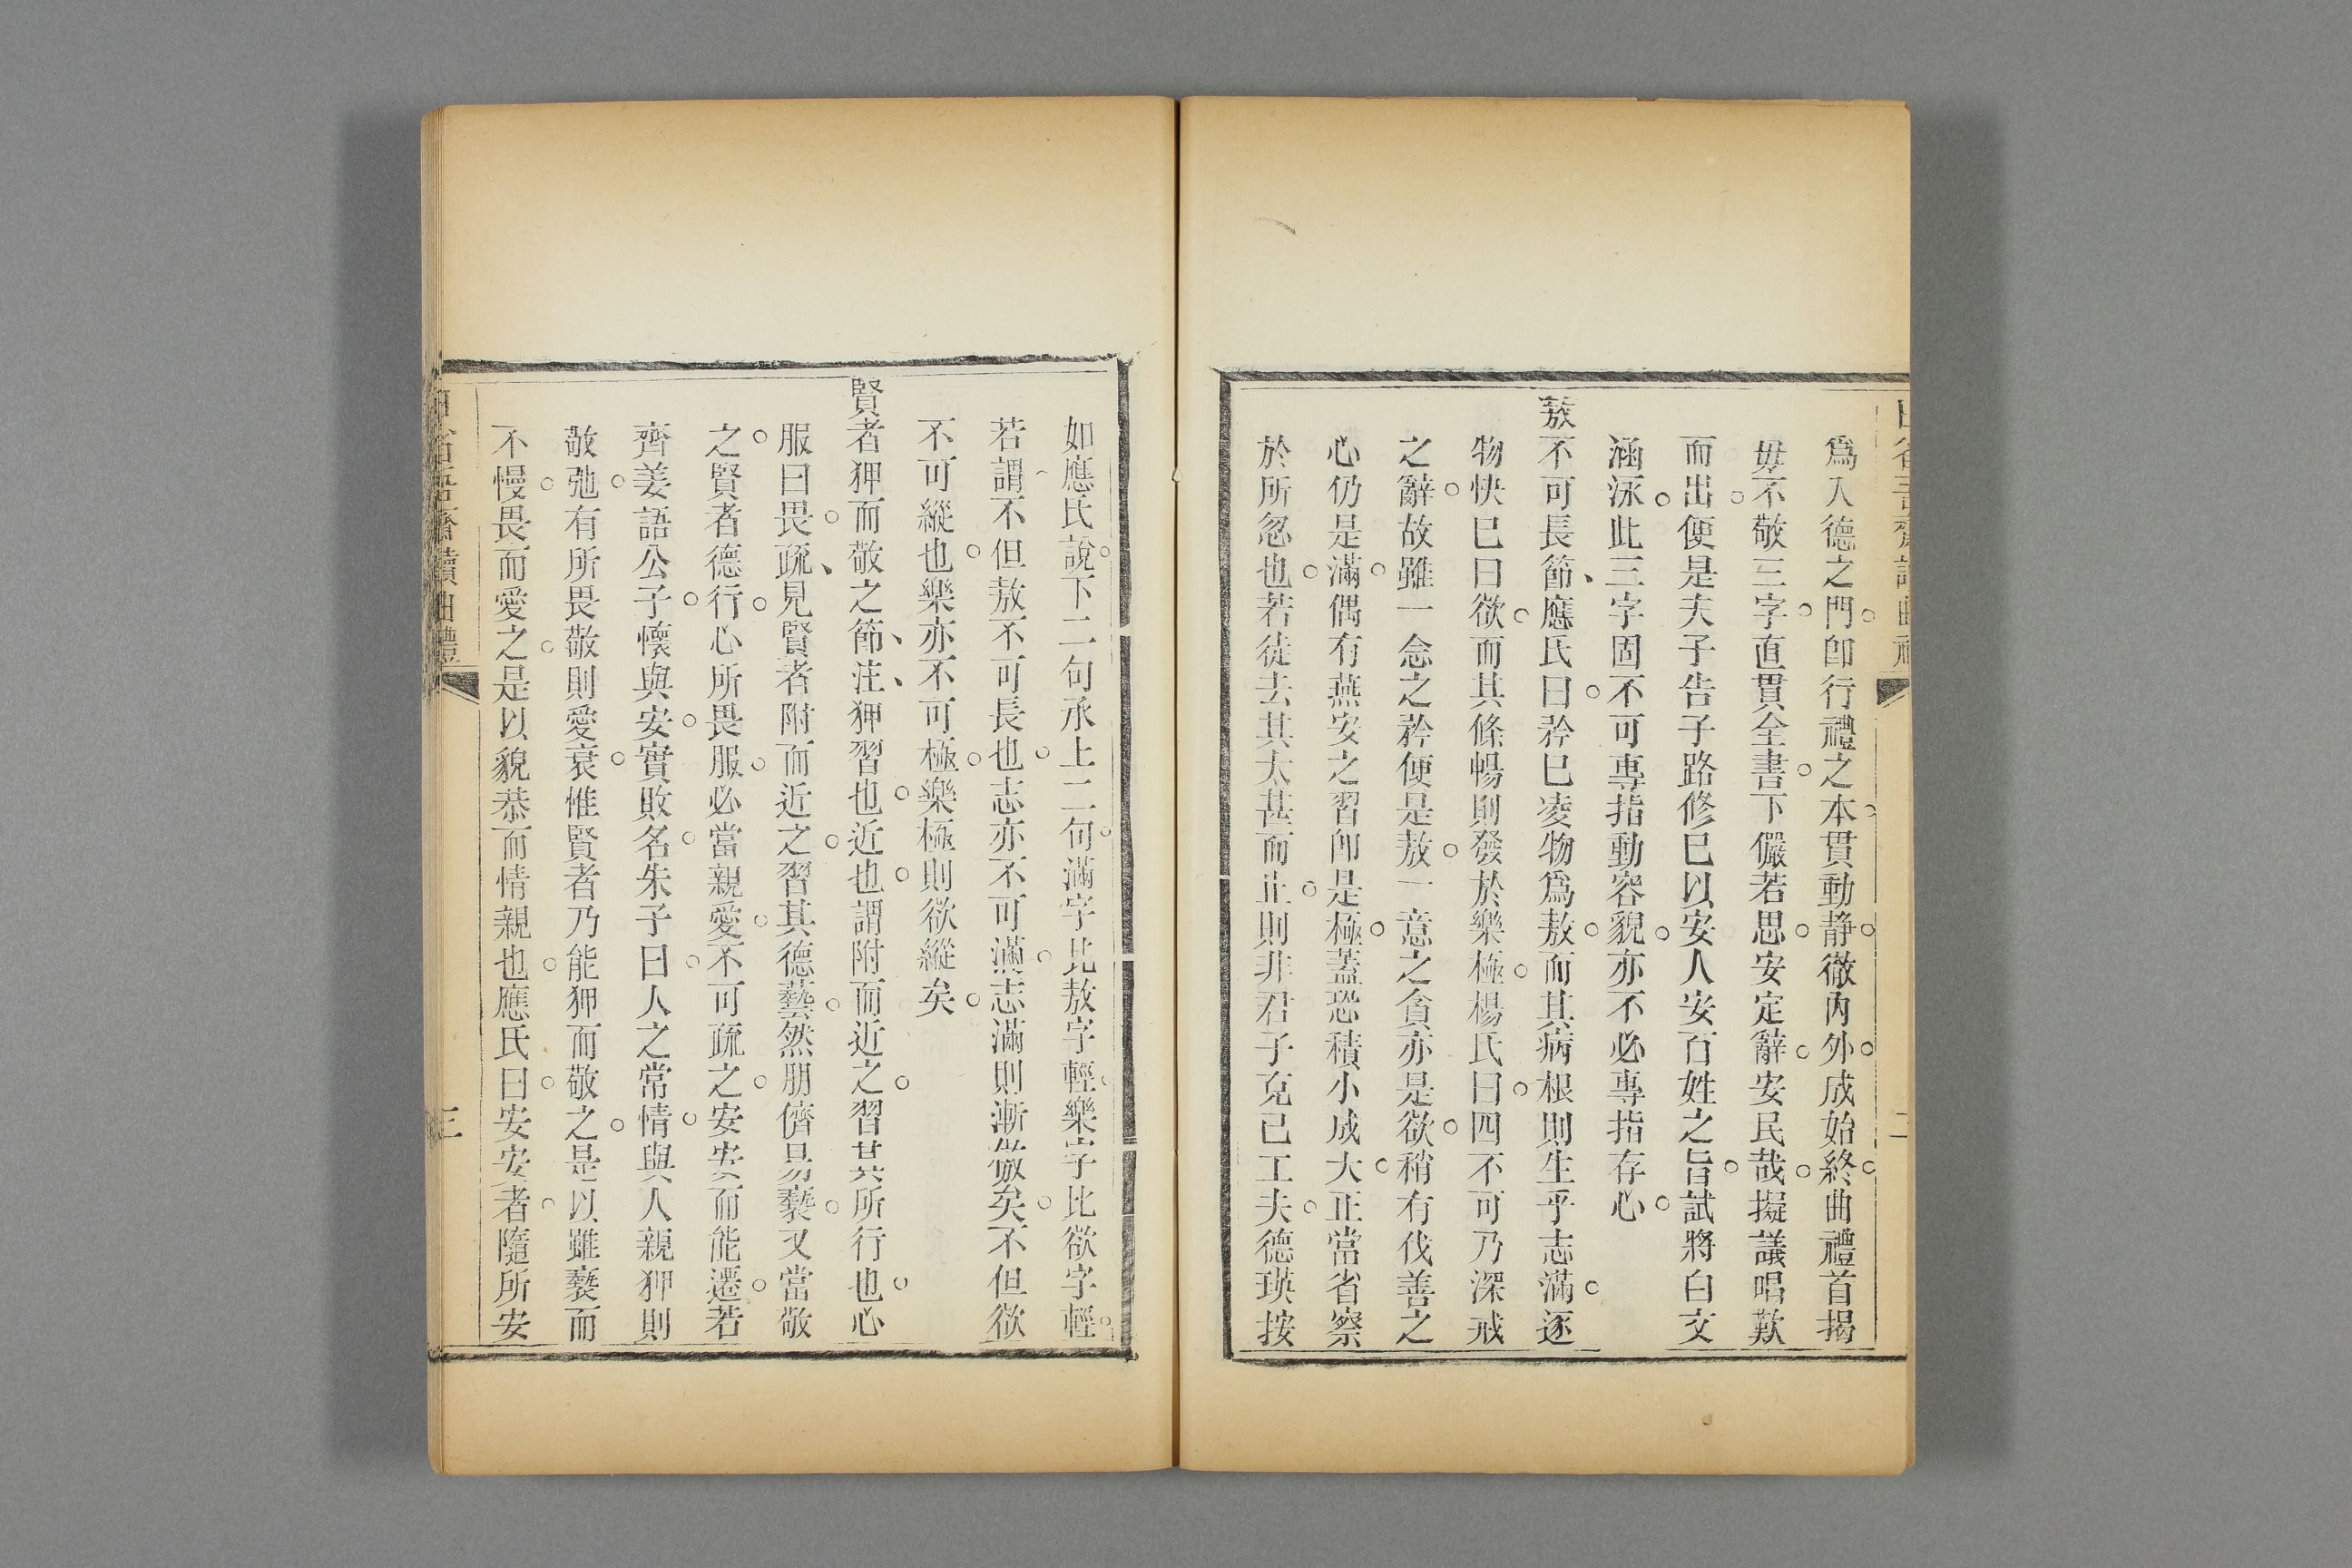 爲入德之門卽行禮之本貫動静徹內外成始終曲禮首揭
毋不敬三字直貫全書下儼若思安定辭安民哉擬議唱歎
而出便是夫子告子路修已以安人安百姓之旨試將白文
涵泳此三字固不可專指動容貌亦不必專指存心
敖不可長節應氏曰矜已凌物爲敖而其病根則生乎志滿逐
物快已曰欲而其條暢則發於樂極楊氏曰四不可乃深戒
之辭故雖一念之矜便是敖一意之貪亦是欲稍有伐善之
心仍是滿偶有燕安之習卽是極蓋恐積小成大正當省察
於所忽也若徒去其太甚而止則非君子克己工夫德瑛按
如應氏說下二句承上二句滿字比敖字輕樂字比欲字輕
若謂不但敖不可長也志亦不可滿志滿則漸傲矣不但欲
不可縱也樂亦不可極樂極則欲縱矣
賢者狎而敬之節注狎習也近也謂附而近之習其所行也心
服曰畏疏見賢者附而近之習其德藝然朋儕易褻又當敬
之賢者德行心所畏服必當親愛不可疏之安安而能遷若
齊姜語公子懷與安實敗名朱子曰人之常情與人親狎則
敬弛有所畏敬則愛衰惟賢者乃能狎而敬之是以雖褻而
不慢畏而愛之是以貌恭而情親也應氏曰安安者隨所安
三